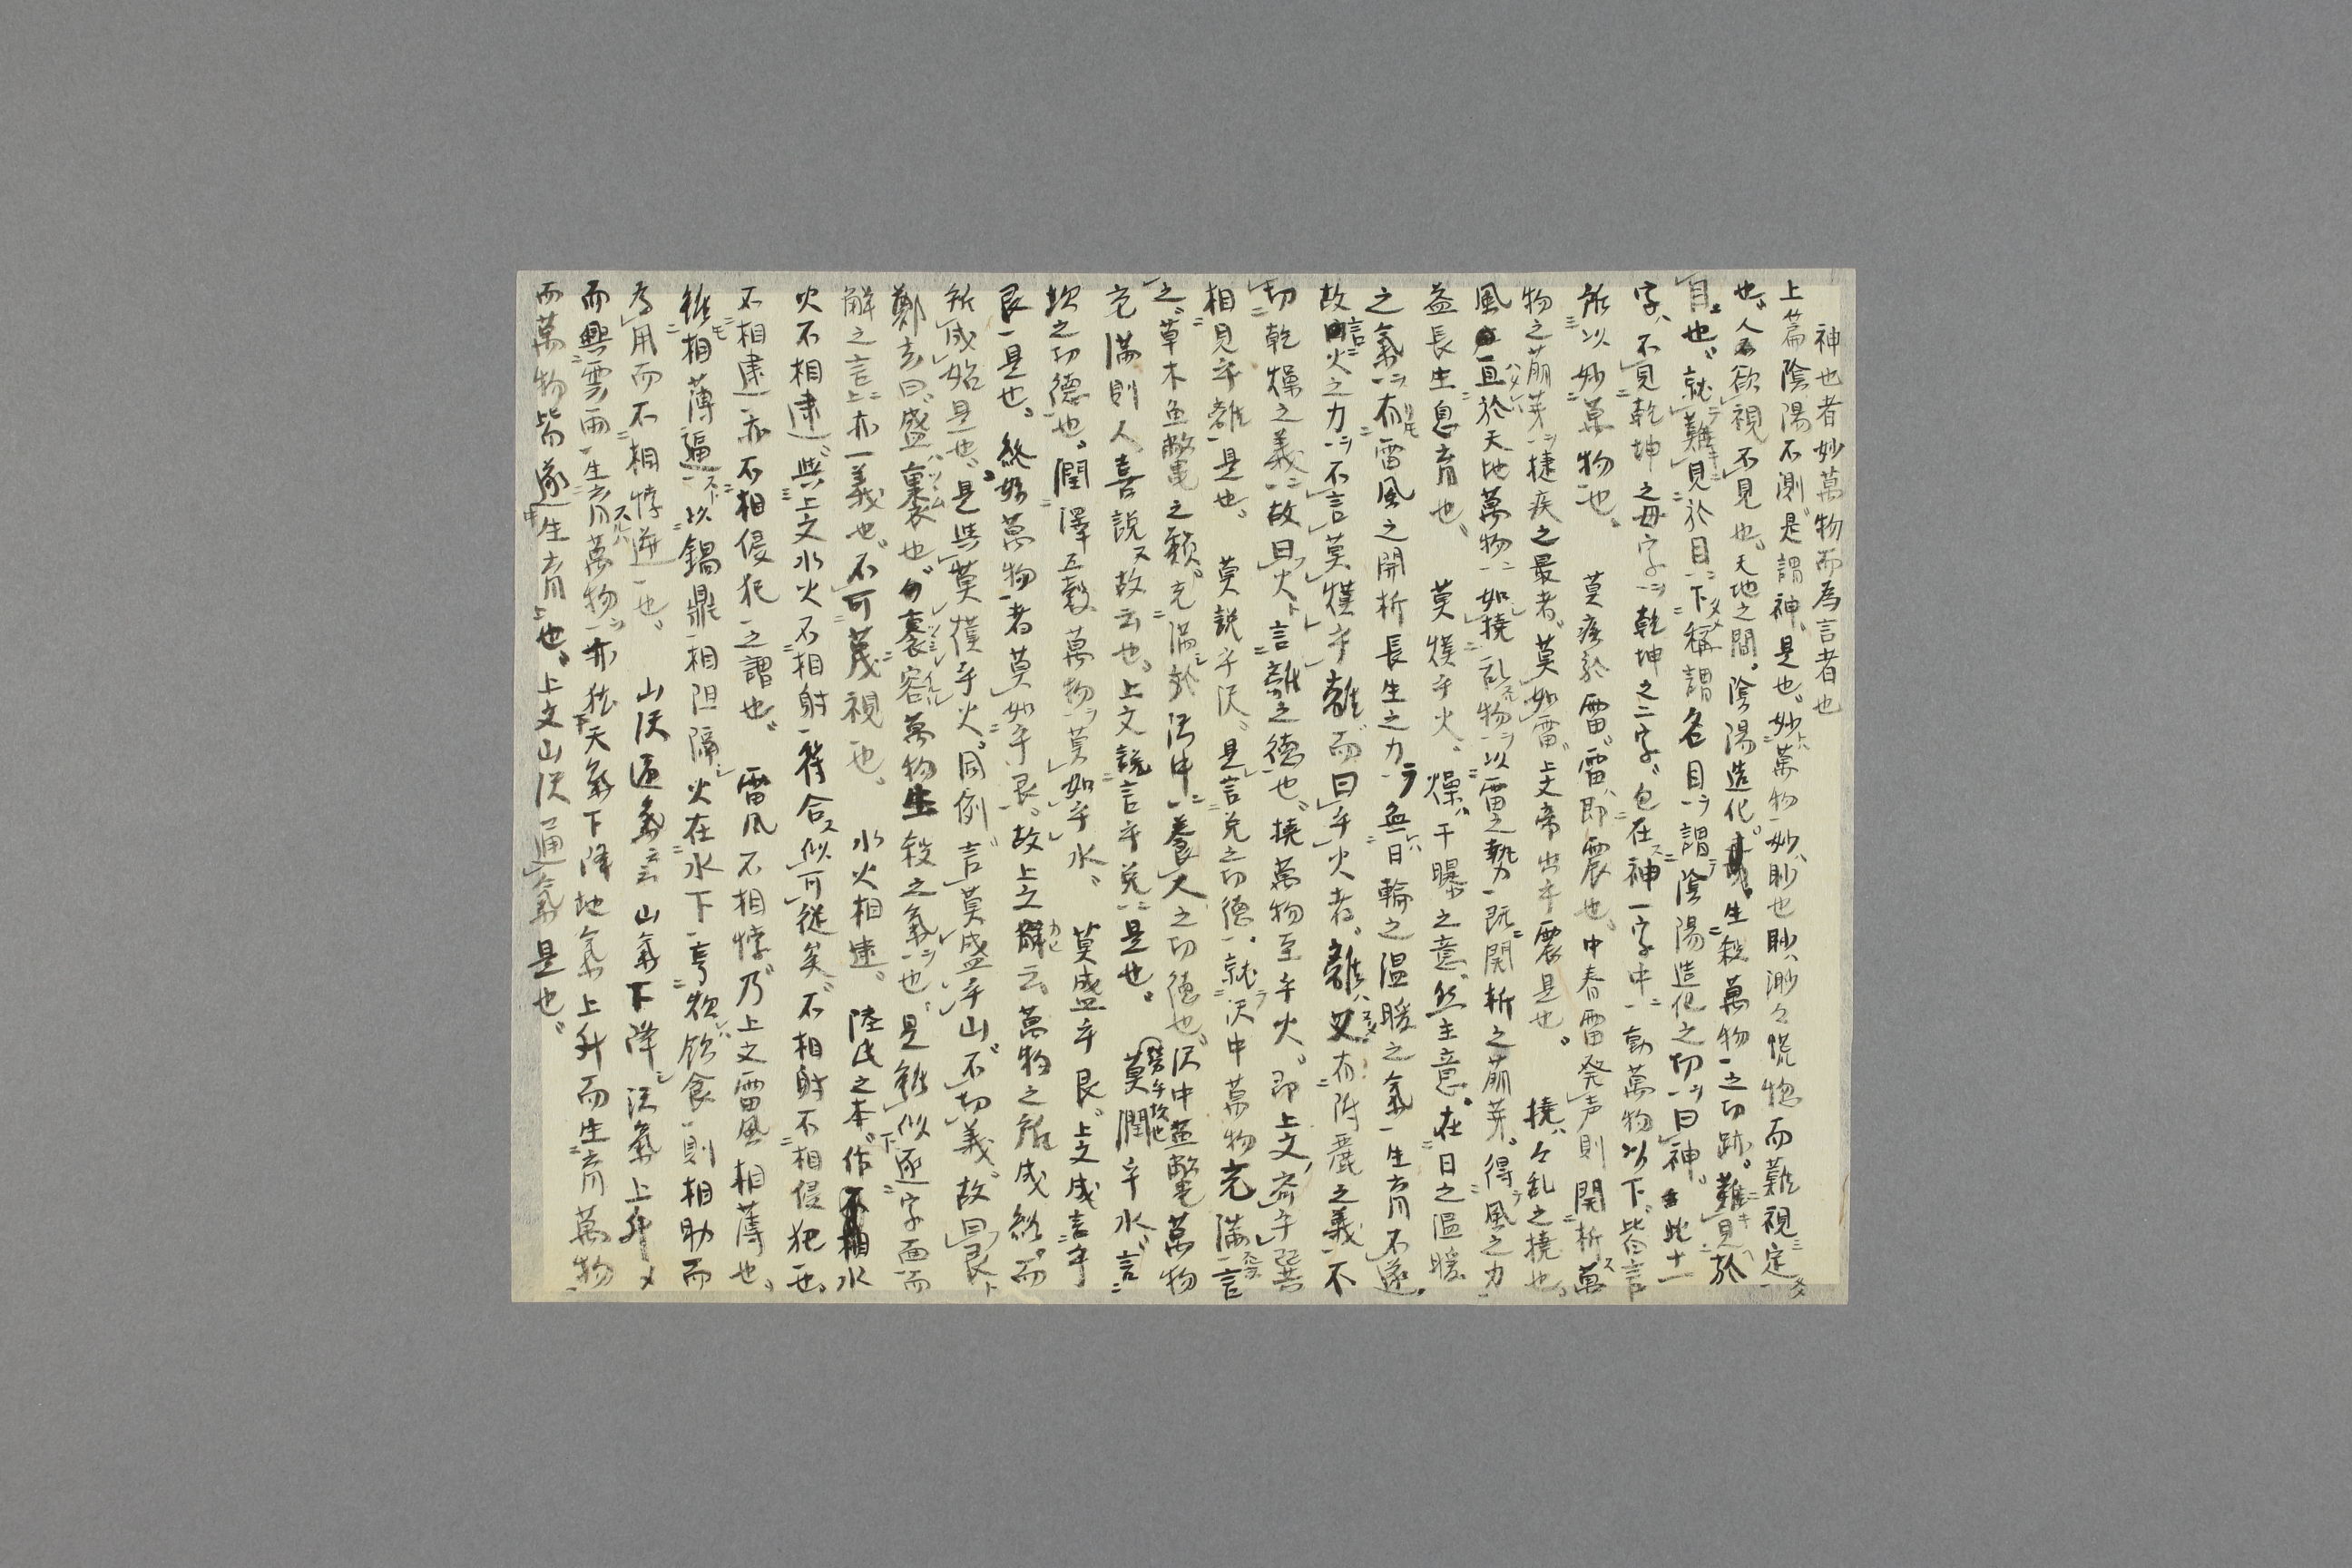 神也者妙萬物而為言者也
上篇陰陽不測是謂神是也妙萬物妙眇也眇渺々慌惚而難視定
也人欲視不見也天地之間陰陽造化生殺萬物之功跡難見於
目也就難見於目下稱謂名目謂陰陽造化之功曰神此十一
字不見乾坤之毋字乾坤之二字包在神一字中動萬物以下皆言
所以妙萬物也 莫疾於雷雷即震也中春雷発声則開析萬
物之萠芽捷疾之最者莫如雷上文帝出乎震是也 撓々乱之撓也
風亘於天地萬物如撓乱物以雷之勢既開析之萠芽得風之力
益長生息育也 莫熯乎火燥干曝之意然主意在日之温暖
之氣有雷風之開析長生之力無日輪之温暖之氣生育不遂
故言火之力不言莫熯乎離而曰乎火者離又有附麗之義不
切乾燥之義故曰火言離之德也撓萬物至乎火即上文齊乎巽
相見乎離是也 莫説乎沢是言兌之功德就沢中萬物充滿言
之草木魚鼈之類充滿於沢中養大之功德也沢中魚鼈萬物
充滿則人喜説又故云也上文説言乎兌是也 莫潤乎水言
坎之功德也潤澤五穀萬物莫如乎水 莫盛乎艮上文成言乎
艮是也終始萬物者莫如乎艮故上文解云萬物之所成終而
所成始是也是與莫熯乎火同例言莫盛乎山不切義故曰艮
鄭玄曰盛裹也裹容萬物生殺之氣也是雖似逐字面而
解之言亦一義也不可蔑視也 水火相逮 陸氏之本作水
火不相逮與上文水火不相射符合似可從矣不相射不相侵犯也
不相逮亦不相侵犯之謂也 雷風不相悖乃上文雷風相薄也
雖相薄逼以鍋鼎相阻隔火在水下亨飲食則相助而
為用而不相悖逆也 山沢通氣云山氣下降沢氣上升
而興雲雨生育萬物亦猶天氣下降地氣上升而生育萬物
而萬物皆遂生育也上文山沢通氣是也